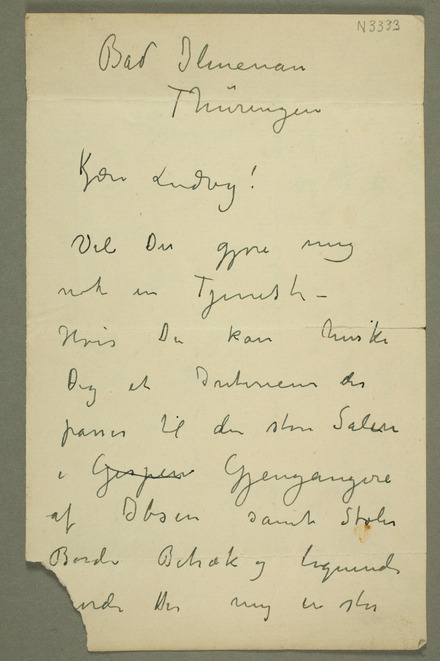 N3333
Bad Ilmenau
Thüringen
Kjære Ludvig!
Vil Du gjøre mig
nok en Tjeneste –
Hvis Du kan huske
Dig et Interieur der
passer til den store Salen
i Gespen Gjengangere
af Ibsen samt Stoler
Borde Betræk og lignende
Du mig en stor